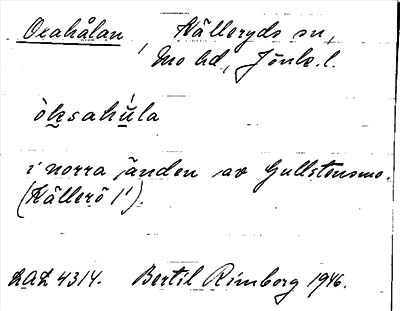 Oxahålan, Källeryds sn,
Mo hd, Jönk. l.
òksahúla
i norra änden av Gullstensmo.
(Källerö 1¹).
LAL 4314. Bertil Rimborg 1946.